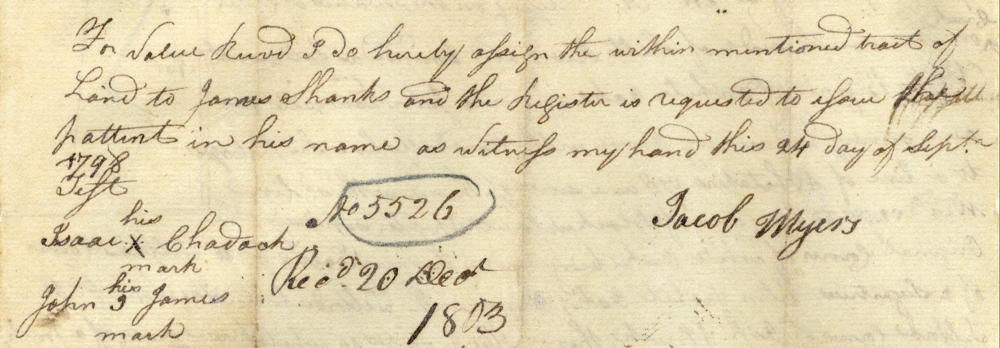 For Value Recvd I do hereby assign the within mentioned tract of
Land to James Shanks and the Register is requested to issue the
pattent in his name as witness my hand this 24 day of Sept.r
1798
Test
Jacob Myers
his
Isaac X Chadack
mark
his
John J James
mark
No 5526
Recd. 20 Decr
1803